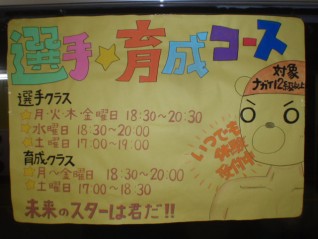 選手☆育成コース
選手クラス
☆月・火・木・金曜日 18:30~20:30
☆水曜日 18:30~20:00
☆土曜日 17:00~19:00
育成クラス
☆月~金曜日 18:30~20:00
☆土曜日 17:00~18:30
未来のスターは君だ!!
対象
12級以上
いつでも
体験
受付中